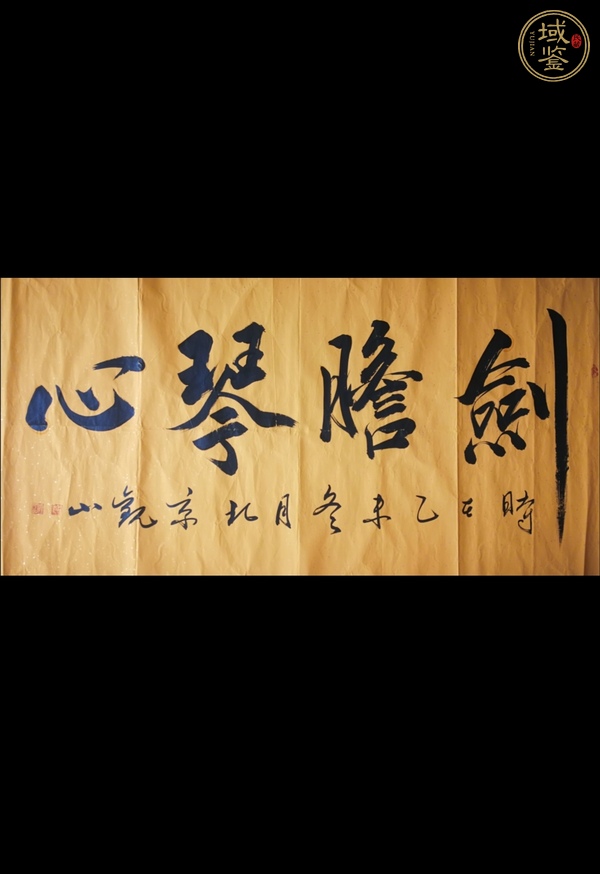 域鉴
YUJIAN
劍膽琴心
時在乙未冬月北京觀山